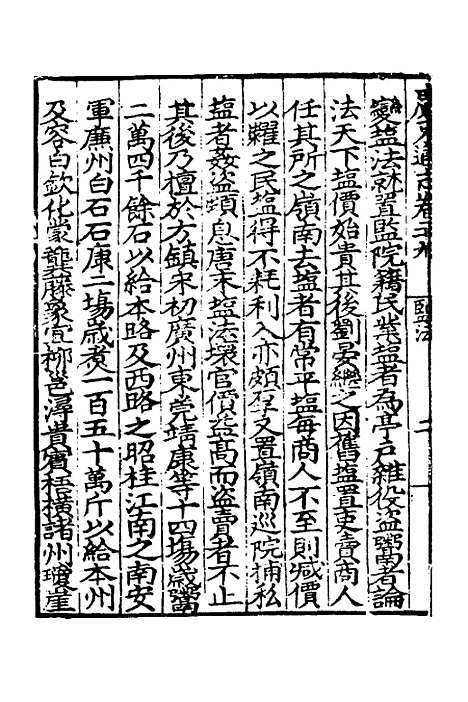 廣東通志卷二十九　鹽法　二
變塩法就置監院籍民業塩者為亭户雜役盗鬻者論
法天下塩價始貴其後劉晏繼之因舊塩置吏賣商人
任其所之嶺南去塩者有常平塩每商人不至則減價
以糶之民塩得不耗利入亦頗厚又置嶺南巡院捕私
塩者姦盗頓息唐末塩法壞官價益髙而盗賣者不止
其後乃檀於方鎮宋初廣州東莞靖康等十四塲歲鬻
二萬四千餘石以給本路及西路之昭桂江南之南安
軍廉州白石石康二塲歲煑一百五十萬斤以給本州
及容白欽化蒙龔藤象宜柳邕潯貴賔梧横諸州瓊崖